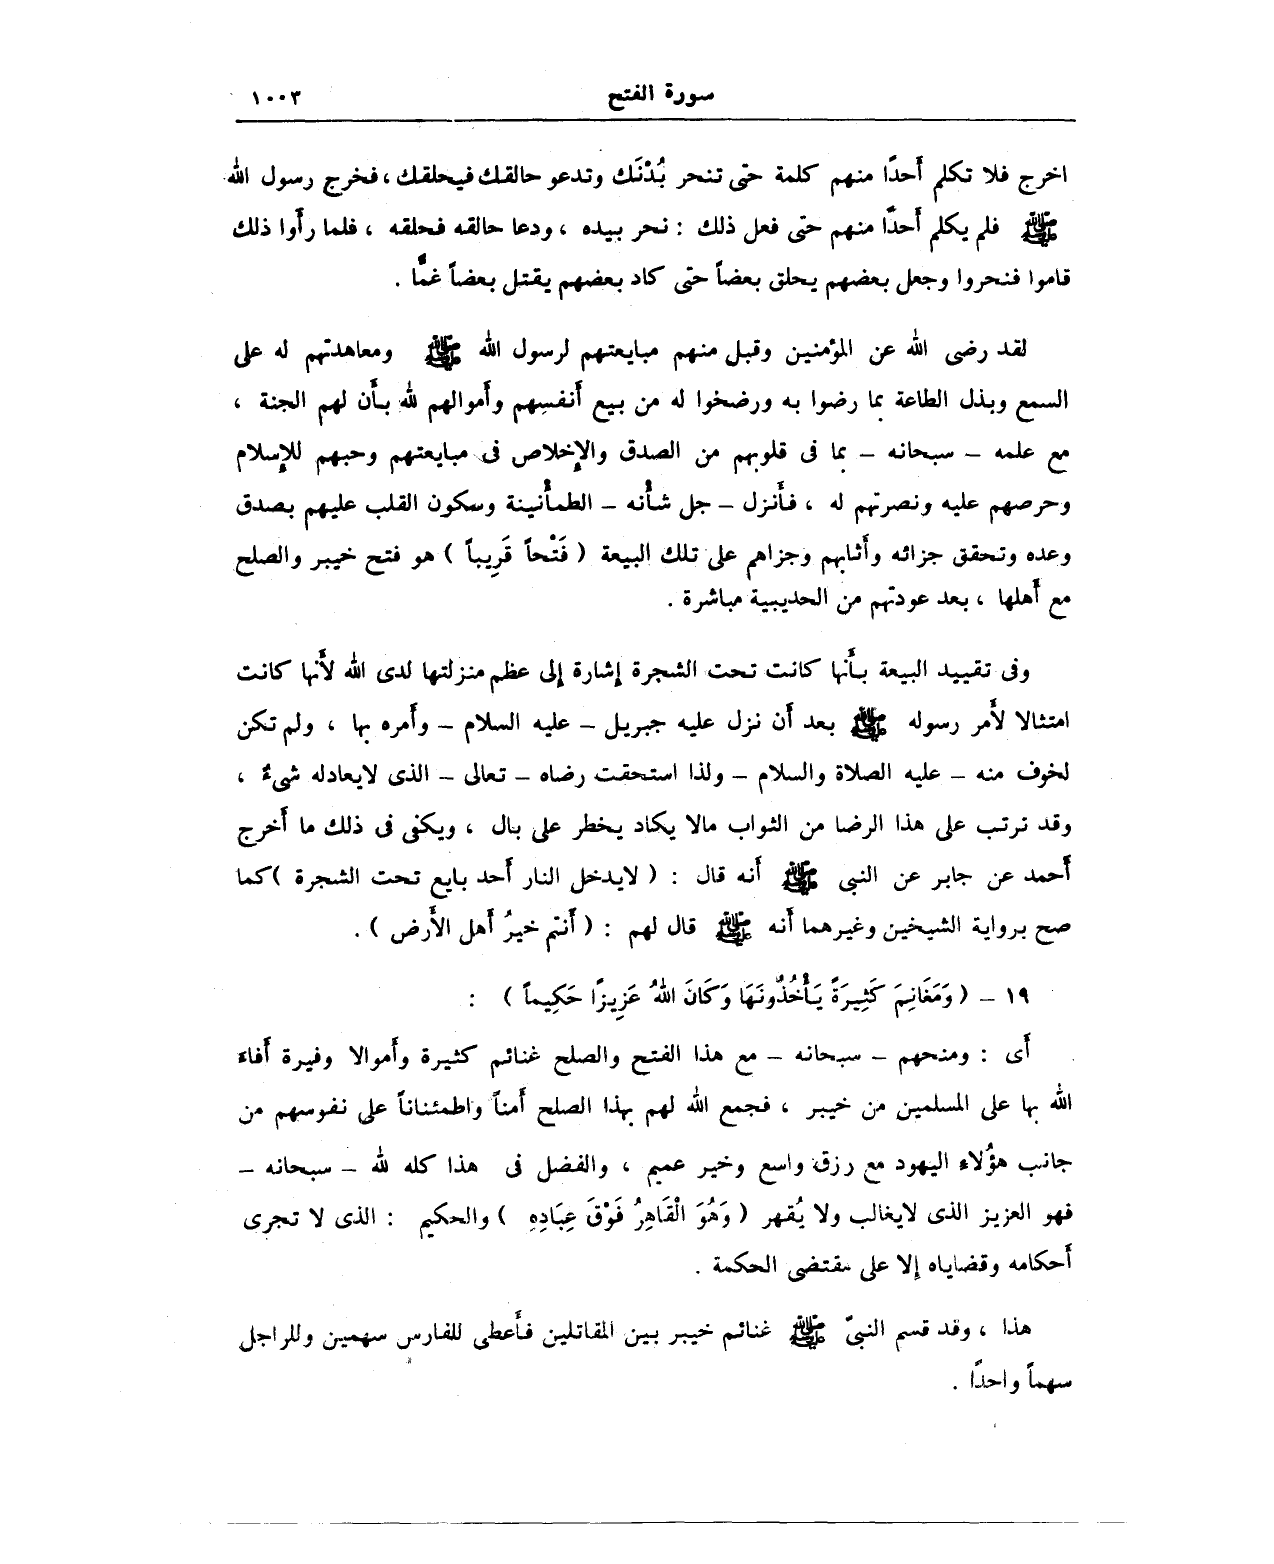 سورة الفتح ١٠٠٣
اخرج فلا تكلم أحدًا منهم كلمة حتى تنحر بُدْنَك وتدعو حالقك فيحلقك ، فخرج رسول الله
ﷺ فلم يكلم أحدًا منهم حتى فعل ذلك : نحر بيده ، ودعا حالقه فحلقه ، فلما رأوا ذلك
قاموا فنحروا وجعل بعضهم يحلق بعضاً حتى كاد بعضهم يقتل بعضاً غمًّا .
لقد رضى الله عن المؤمنين وقبل منهم مبايعتهم لرسول الله ﷺ ومعاهدتهم له على
السمع وبذل الطاعة بما رضوا به ورضخوا له من بيع أنفسهم وأموالهم لله بأن لهم الجنة ،
مع علمه – سبحانه – بما فى قلوبهم من الصدق والإخلاص فى مبايعتهم وحبهم للإسلام
وحرصهم عليه ونصرتهم له ، فأنزل – جل شأنه – الطمأنينة وسكون القلب عليهم بصدق
وعده وتحقق جزائه وأثابهم وجزاهم على تلك البيعة ( فَتْحاً قَرِيباً ) هو فتح خيبر والصلح
مع أهلها ، بعد عودتهم من الحديبية مباشرة .
وفى تقييد البيعة بأنها كانت تحت الشجرة إشارة إلى عظم منزلتها لدى الله لأنها كانت
امتثالا لأمر رسوله ﷺ بعد أن نزل عليه جبريل – عليه السلام – وأمره بها ، ولم تكن
لخوف منه – عليه الصلاة والسلام – ولذا استحقت رضاه – تعالى – الذى لايعادله شىء ،
وقد ترتب على هذا الرضا من الثواب مالا يكاد يخطر على بال ، ويكفى فى ذلك ما أخرج
أحمد عن جابر عن النبى ﷺ أنه قال : ( لايدخل النار أحد بايع تحت الشجرة ) كما
صح برواية الشيخين وغيرهما أنه ﷺ قال لهم : ( أنتم خيرُ أهل الأرض ) .
١٩ – ( وَمَغَانِمَ كَثِيرَةً يَأْخُذُونَهَا وَكَانَ اللهُ عَزِيزًا حَكِيماً ) :
أى : ومنحهم – سبحانه – مع هذا الفتح والصلح غنائم كثيرة وأموالا وفيرة أفاء
الله بها على المسلمين من خيبر ، فجمع الله لهم بهذا الصلح أمناً واطمئناناً على نفوسهم من
جانب هؤُلاء اليهود مع رزق واسع وخير عميم ، والفضل فى هذا كله لله – سبحانه –
فهو العزيز الذى لايغالب ولا يُقهر ( وَهُوَ الْقَاهِرُ فَوْقَ عِبَادِهِ ) والحكيم : الذى لا تجرى
أحكامه وقضاياه إلا على مقتضى الحكمة .
هذا ، وقد قسم النبىّ ﷺ غنائم خيبر بين المقاتلين فأعطى للفارس سهمين وللراجل
سهماً واحدًا .